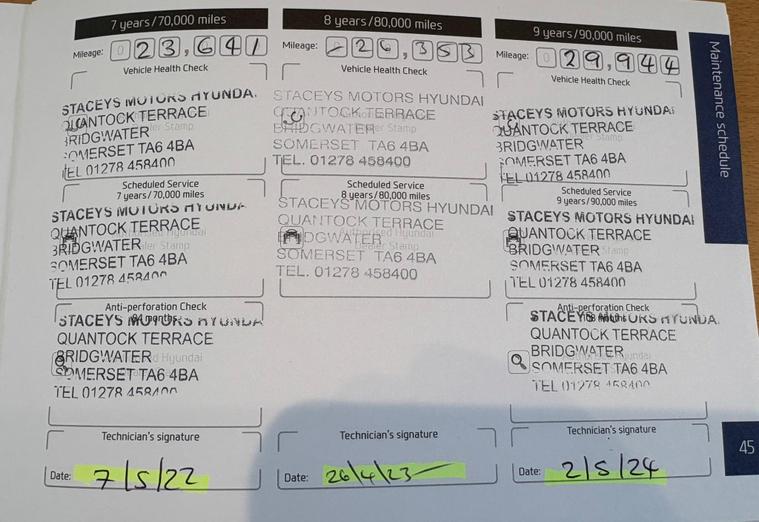 7 years/70,000 miles
Mileage: 0 23,641
Vehicle Health Check
STACEYS MOTORS HYUNDAI
QUANTOCK TERRACE
BRIDGWATER
SOMERSET TA6 4BA
TEL 01278 458400
Scheduled Service
7 years/70,000 miles
STACEYS MOTORS HYUNDAI
QUANTOCK TERRACE
BRIDGWATER
SOMERSET TA6 4BA
TEL 01278 458400
Anti-perforation Check
84 months
STACEYS MOTORS HYUNDAI
QUANTOCK TERRACE
BRIDGWATER
SOMERSET TA6 4BA
TEL 01278 458400
Technician's signature
Date: 7/5/22
8 years/80,000 miles
Mileage: - 26,353
Vehicle Health Check
STACEYS MOTORS HYUNDAI
QUANTOCK TERRACE
BRIDGWATER
SOMERSET TA6 4BA
TEL. 01278 458400
Scheduled Service
8 years/80,000 miles
STACEYS MOTORS HYUNDAI
QUANTOCK TERRACE
BRIDGWATER
SOMERSET TA6 4BA
TEL. 01278 458400
Technician's signature
Date: 26/4/23
9 years/90,000 miles
Mileage: 0 29,944
Vehicle Health Check
STACEYS MOTORS HYUNDAI
QUANTOCK TERRACE
BRIDGWATER
SOMERSET TA6 4BA
TEL 01278 458400
Scheduled Service
9 years/90,000 miles
STACEYS MOTORS HYUNDAI
QUANTOCK TERRACE
BRIDGWATER
SOMERSET TA6 4BA
TEL 01278 458400
Anti-perforation Check
STACEYS MOTORS HYUNDAI
QUANTOCK TERRACE
BRIDGWATER
SOMERSET TA6 4BA
TEL 01278 458400
Technician's signature
Date: 2/5/24
Maintenance schedule
45